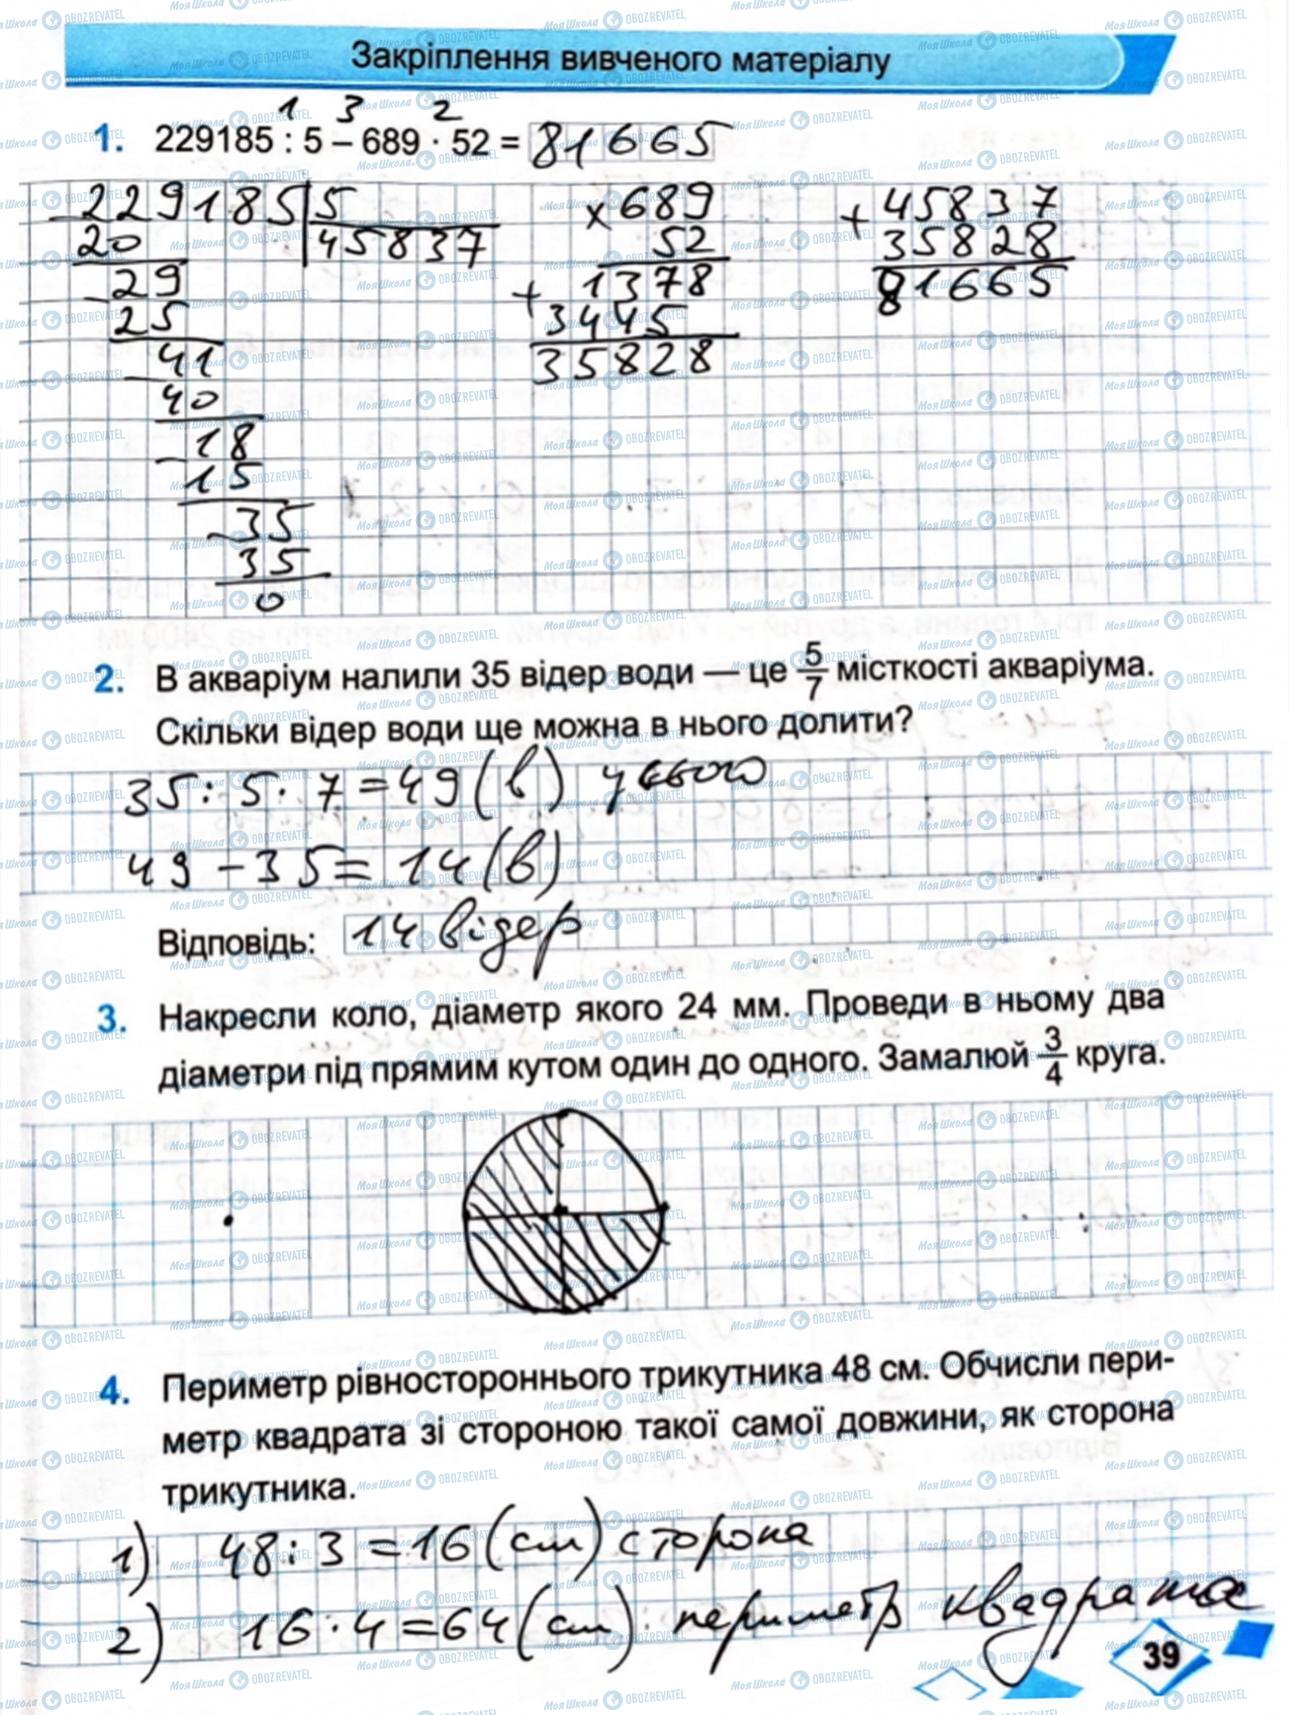 Закріплення вивченого матеріалу
1 3 2
1. 229185 : 5 – 689 · 52 = 81665
229185 5
20 45837
29
25
41
40
18
15
35
35
0
× 689
52
+ 1378
3445
35828
+ 45837
35828
81665
2. В акваріум налили 35 відер води — це 5/7 місткості акваріума.
Скільки відер води ще можна в нього долити?
35 : 5 · 7 = 49 (в) усього
49 – 35 = 14 (в)
Відповідь: 14 відер
3. Накресли коло, діаметр якого 24 мм. Проведи в ньому два
діаметри під прямим кутом один до одного. Замалюй 3/4 круга.
4. Периметр рівностороннього трикутника 48 см. Обчисли пери-
метр квадрата зі стороною такої самої довжини, як сторона
трикутника.
1) 48 : 3 = 16 (см) сторона
2) 16 · 4 = 64 (см) периметр квадрата
39
МояШкола OBOZREVATEL